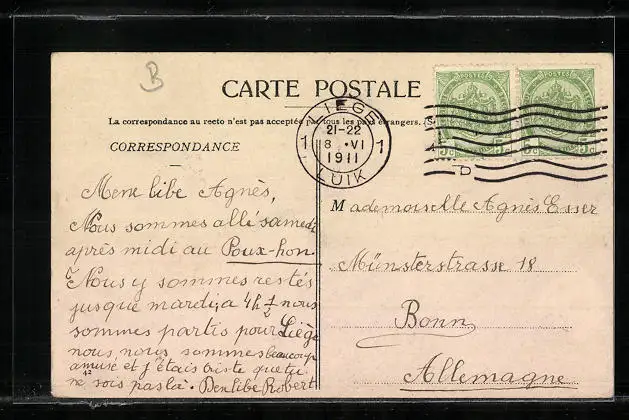 B
CARTE POSTALE
La correspondance au recto n'est pas acceptée par tous les pays étrangers. (S
CORRESPONDANCE
LIEGE
21-22
1 8 . VI 1
1911
LUIK
D
POSTES
5c
POSTES
5c
Meine libe Agnès,
Nous sommes allé samedi
après midi au Poux-hon.
Nous y sommes restés
jusque mardi, a 4h 1/2 nous
sommes partis pour Liège
nous nous sommes beaucoup
amusé et j'étais triste que tu
ne sois pas là. Dein libe Robert
Mademoiselle Agnès Esser
Münsterstrasse 18
Bonn
Allemagne